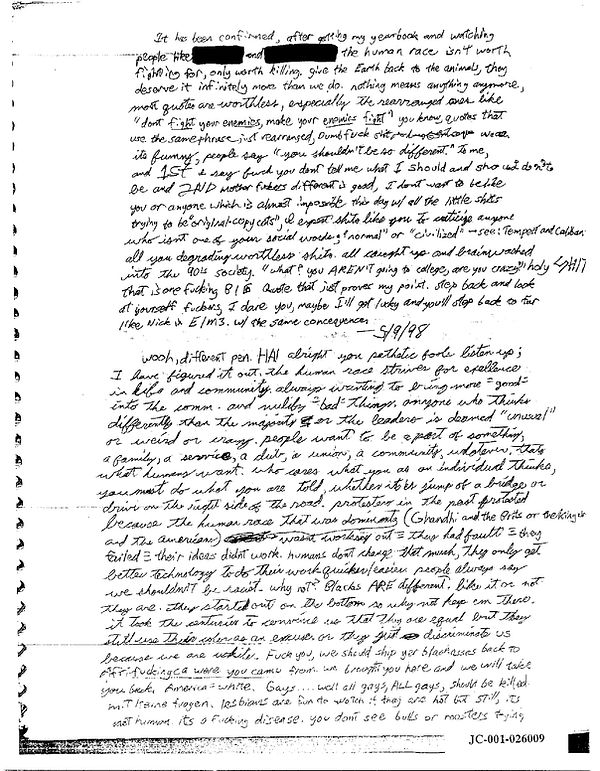 It has been confirmed, after getting my yearbook and watching
people like and the human race isn't worth
fighting for, only worth killing. give the Earth back to the animals, they
deserve it infinitely more than we do. nothing means anything anymore,
most quotes are worthless, especially the rearranged ones like
"dont fight your enemies, make your enemies fight" you know, quotes that
use the same phrase just rearranged, Dumbfuck
its funny, people say "you shouldn't be so different." to me,
and 1ST I say fuck you dont tell me what I should and should n't
be and 2ND mother fuckers different is good, I dont want to be like
you or anyone which is almost impossible this day w/ all the little shits
trying to be "original copycats", I expect shits like you to criticize anyone
who isnt one of your social words; "normal" or "civilized" - see: Tempest and Caliban
all you degrading worthless shits. all caught up and brainwashed
into the 90's society. "what? you AREN'T going to college, are you crazy!" holy SHIT
that is one fucking BIG Quote that just proves my point. step back and look
at yourself fuckers, I dare you, maybe I'll get lucky and you'll step back to far
like Nick in E/M3. w/ the same
- 5/9/98
wooh, different pen. HA! alright you pathetic fools listen up;
I have figured it out. the human race strives for exellence
in life and community, always wanting to bring more =good=
into the comm. and nulify =bad= things. anyone who thinks
differently than the majority or the leaders is deemed "unusual"
or weird or crazy. people want to be a part of something,
a family, a service, a club, a union, a community, whatever. thats
what humans want. who cares what you as an individual thinks,
you must do what you are told, whether its jump of a bridge or
drive on the right side of the road. protesters in the past protested
because the human race that was dominate (Ghandhi and the Brits or
and the americans) wasnt working out = they had fault = they
failed = their ideas didnt work. humans dont change that much, they only get
better technology to do their work quicker/easier people always say
we shouldnt be racist. why not? Blacks ARE different. like it or not
they are. they started out on the bottom so why not keep em there.
it took the centuries to convince us that they are equal but they
still use their color as an excuse. or they just discriminate us
because we are white. Fuck you, we should ship yer black asses back to
Afri-fucking-ca were you came from. we brought you here and we will take
you back. America=white. Gays.... well all gays, ALL gays, should be killed.
mit keine fragen. lesbians are fun to watch if they are hot but still, its
not human. its a fucking disease. you dont see bulls or roosters trying
JC-001-026009